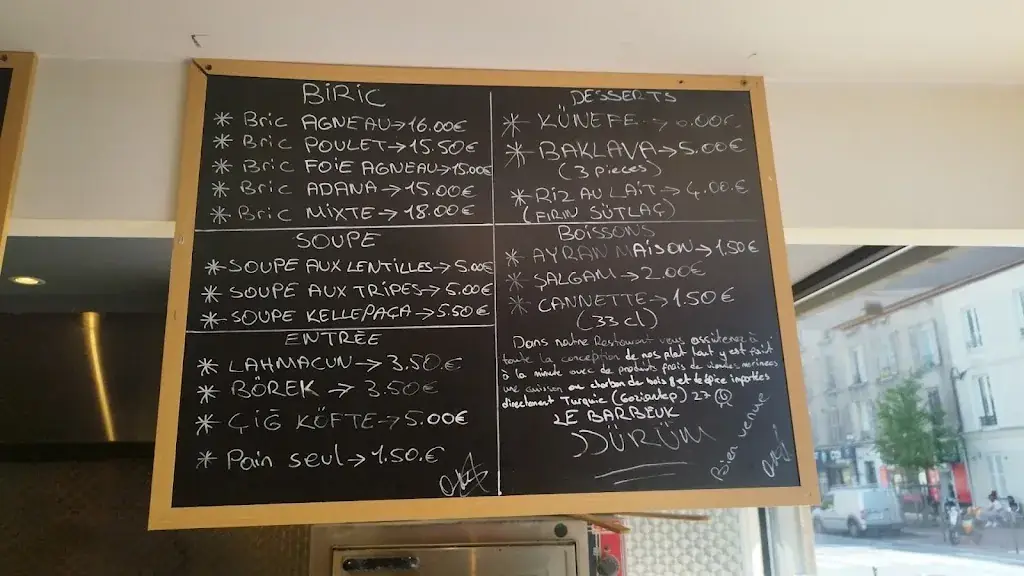 BiRiC
* Bric AGNEAU→16.00€
* Bric POULET→15.50€
* Bric FOIE AGNEAU→15.00€
* Bric ADANA→15.00€
* Bric MIXTE→18.00€
SOUPE
* SOUPE AUX LENTILLES→5.00€
* SOUPE AUX TRIPES→5.00€
* SOUPE KELLEPAÇA→5.50€
ENTRÈE
* LAHMACUN→3.50€
* BÖREK→3.50€
* ÇIĞ KÖFTE→5.00€
* Pain seul→1.50.€
DESSERTS
* KÜNEFE→
* BAKLAVA→5.00€
(3 pieces)
* RIZ AU LAIT→4.00€
(FIRIN SÜTLAÇ)
BOISSONS
* AYRAN MAISON→1.50€
* ŞALGAM→2.00€
* CANNETTE→1.50€
(33 cl)
Dans nautre Restaurant vous assisterez à
toute la conception de nos plat tout y est fait
à la minute avec de produits frais de viandes marinées
une cuisson au charbon de bois et de épice importées
directement Turquie (Gaziantep) 27
LE BARBEUK
DÜRÜM
Bien venue